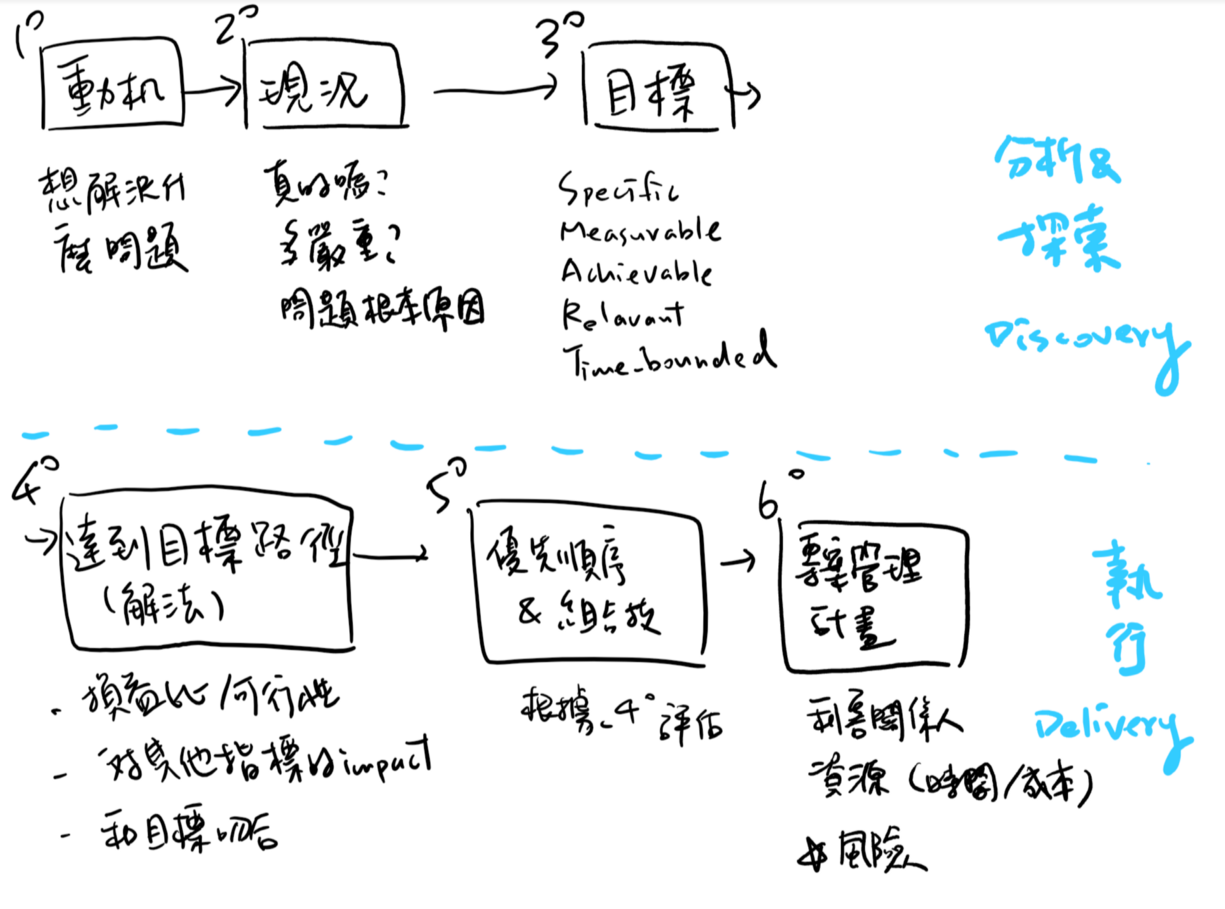 1°
動机
2°
現況
3°
目標
想解決什
麼問題
真的嗎？
多嚴重？
問題根本原因
Specific
Measurable
Achievable
Relavant
Time-bounded
分析&
探索
Discovery
4°
達到目標路徑
(解法)
5°
優先順序
& 組合技
6°
專案管理
計畫
- 損益比/可行性
- 對其他指標的impact
- 和目標吻合
根據 4° 評估
利害關係人
資源 (時間/成本)
風險
執
行
Delivery